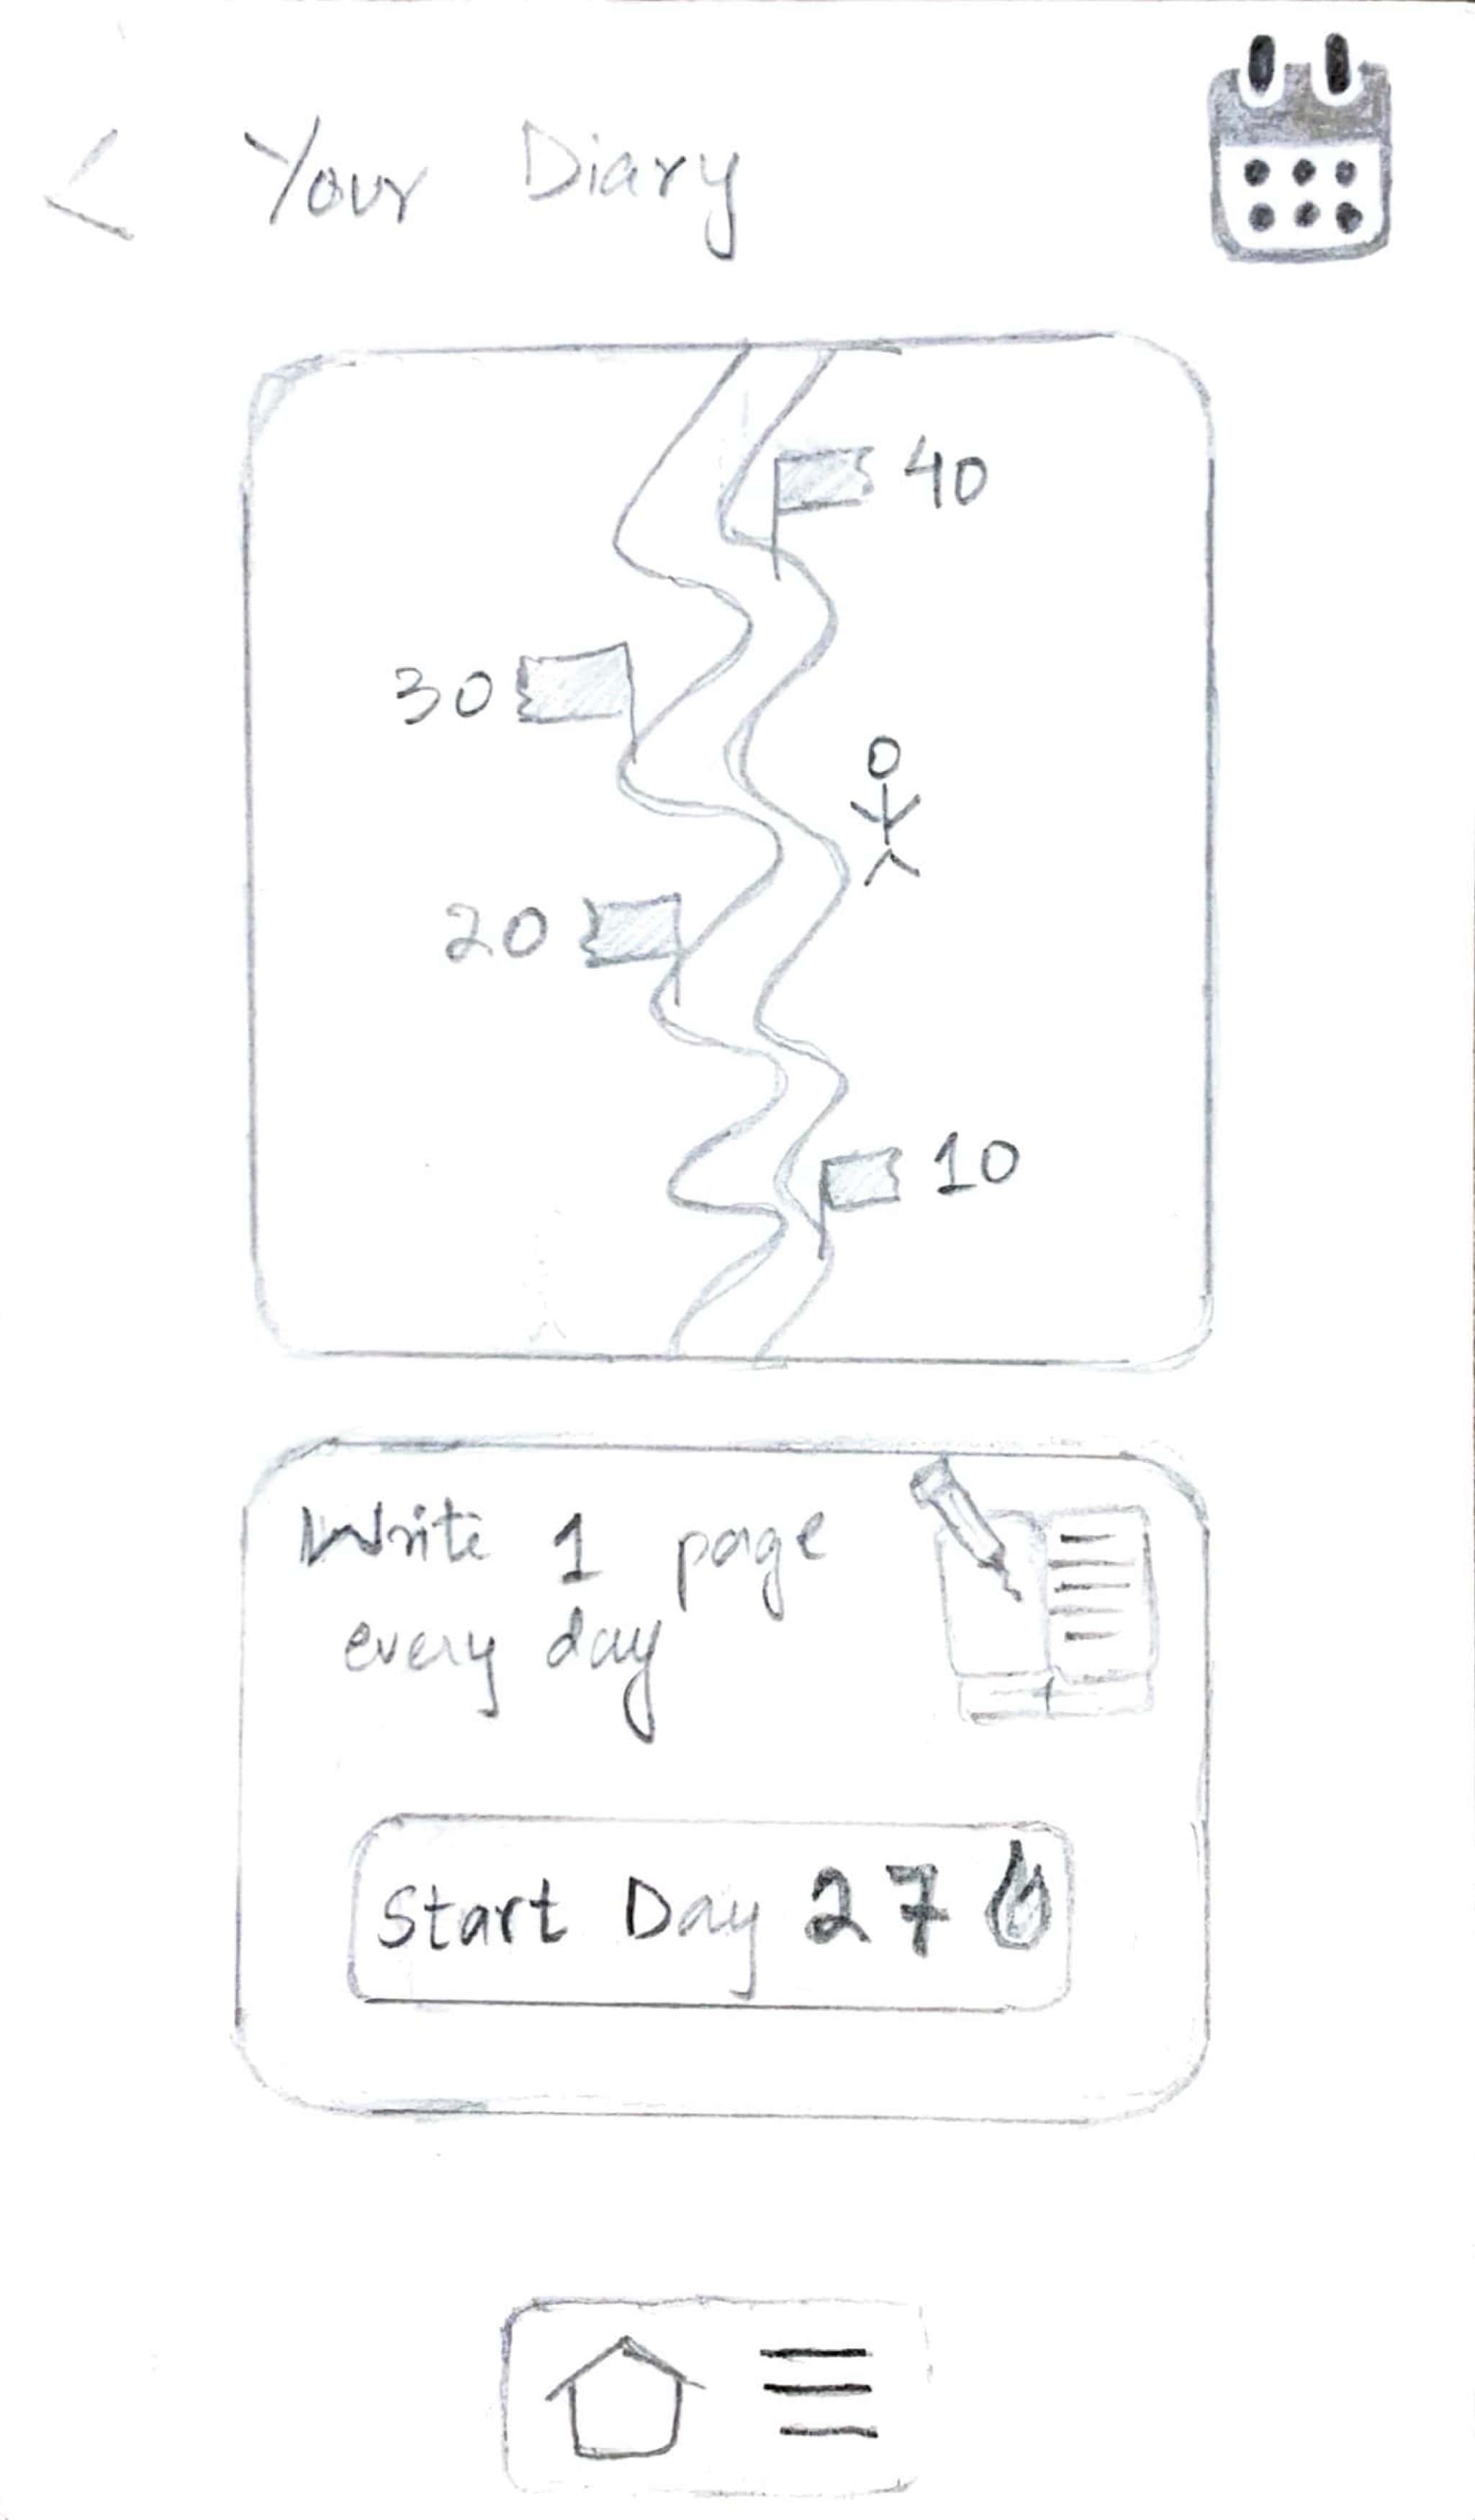 < Your Diary
40
30
20
10
Write 1 page
every day
Start Day 27